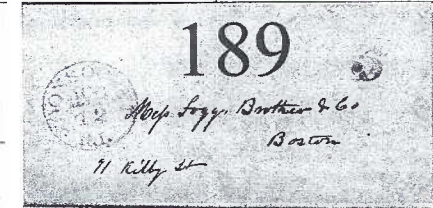 189
Mess Fogg. Brother & Co
Boston
71 Kilby St